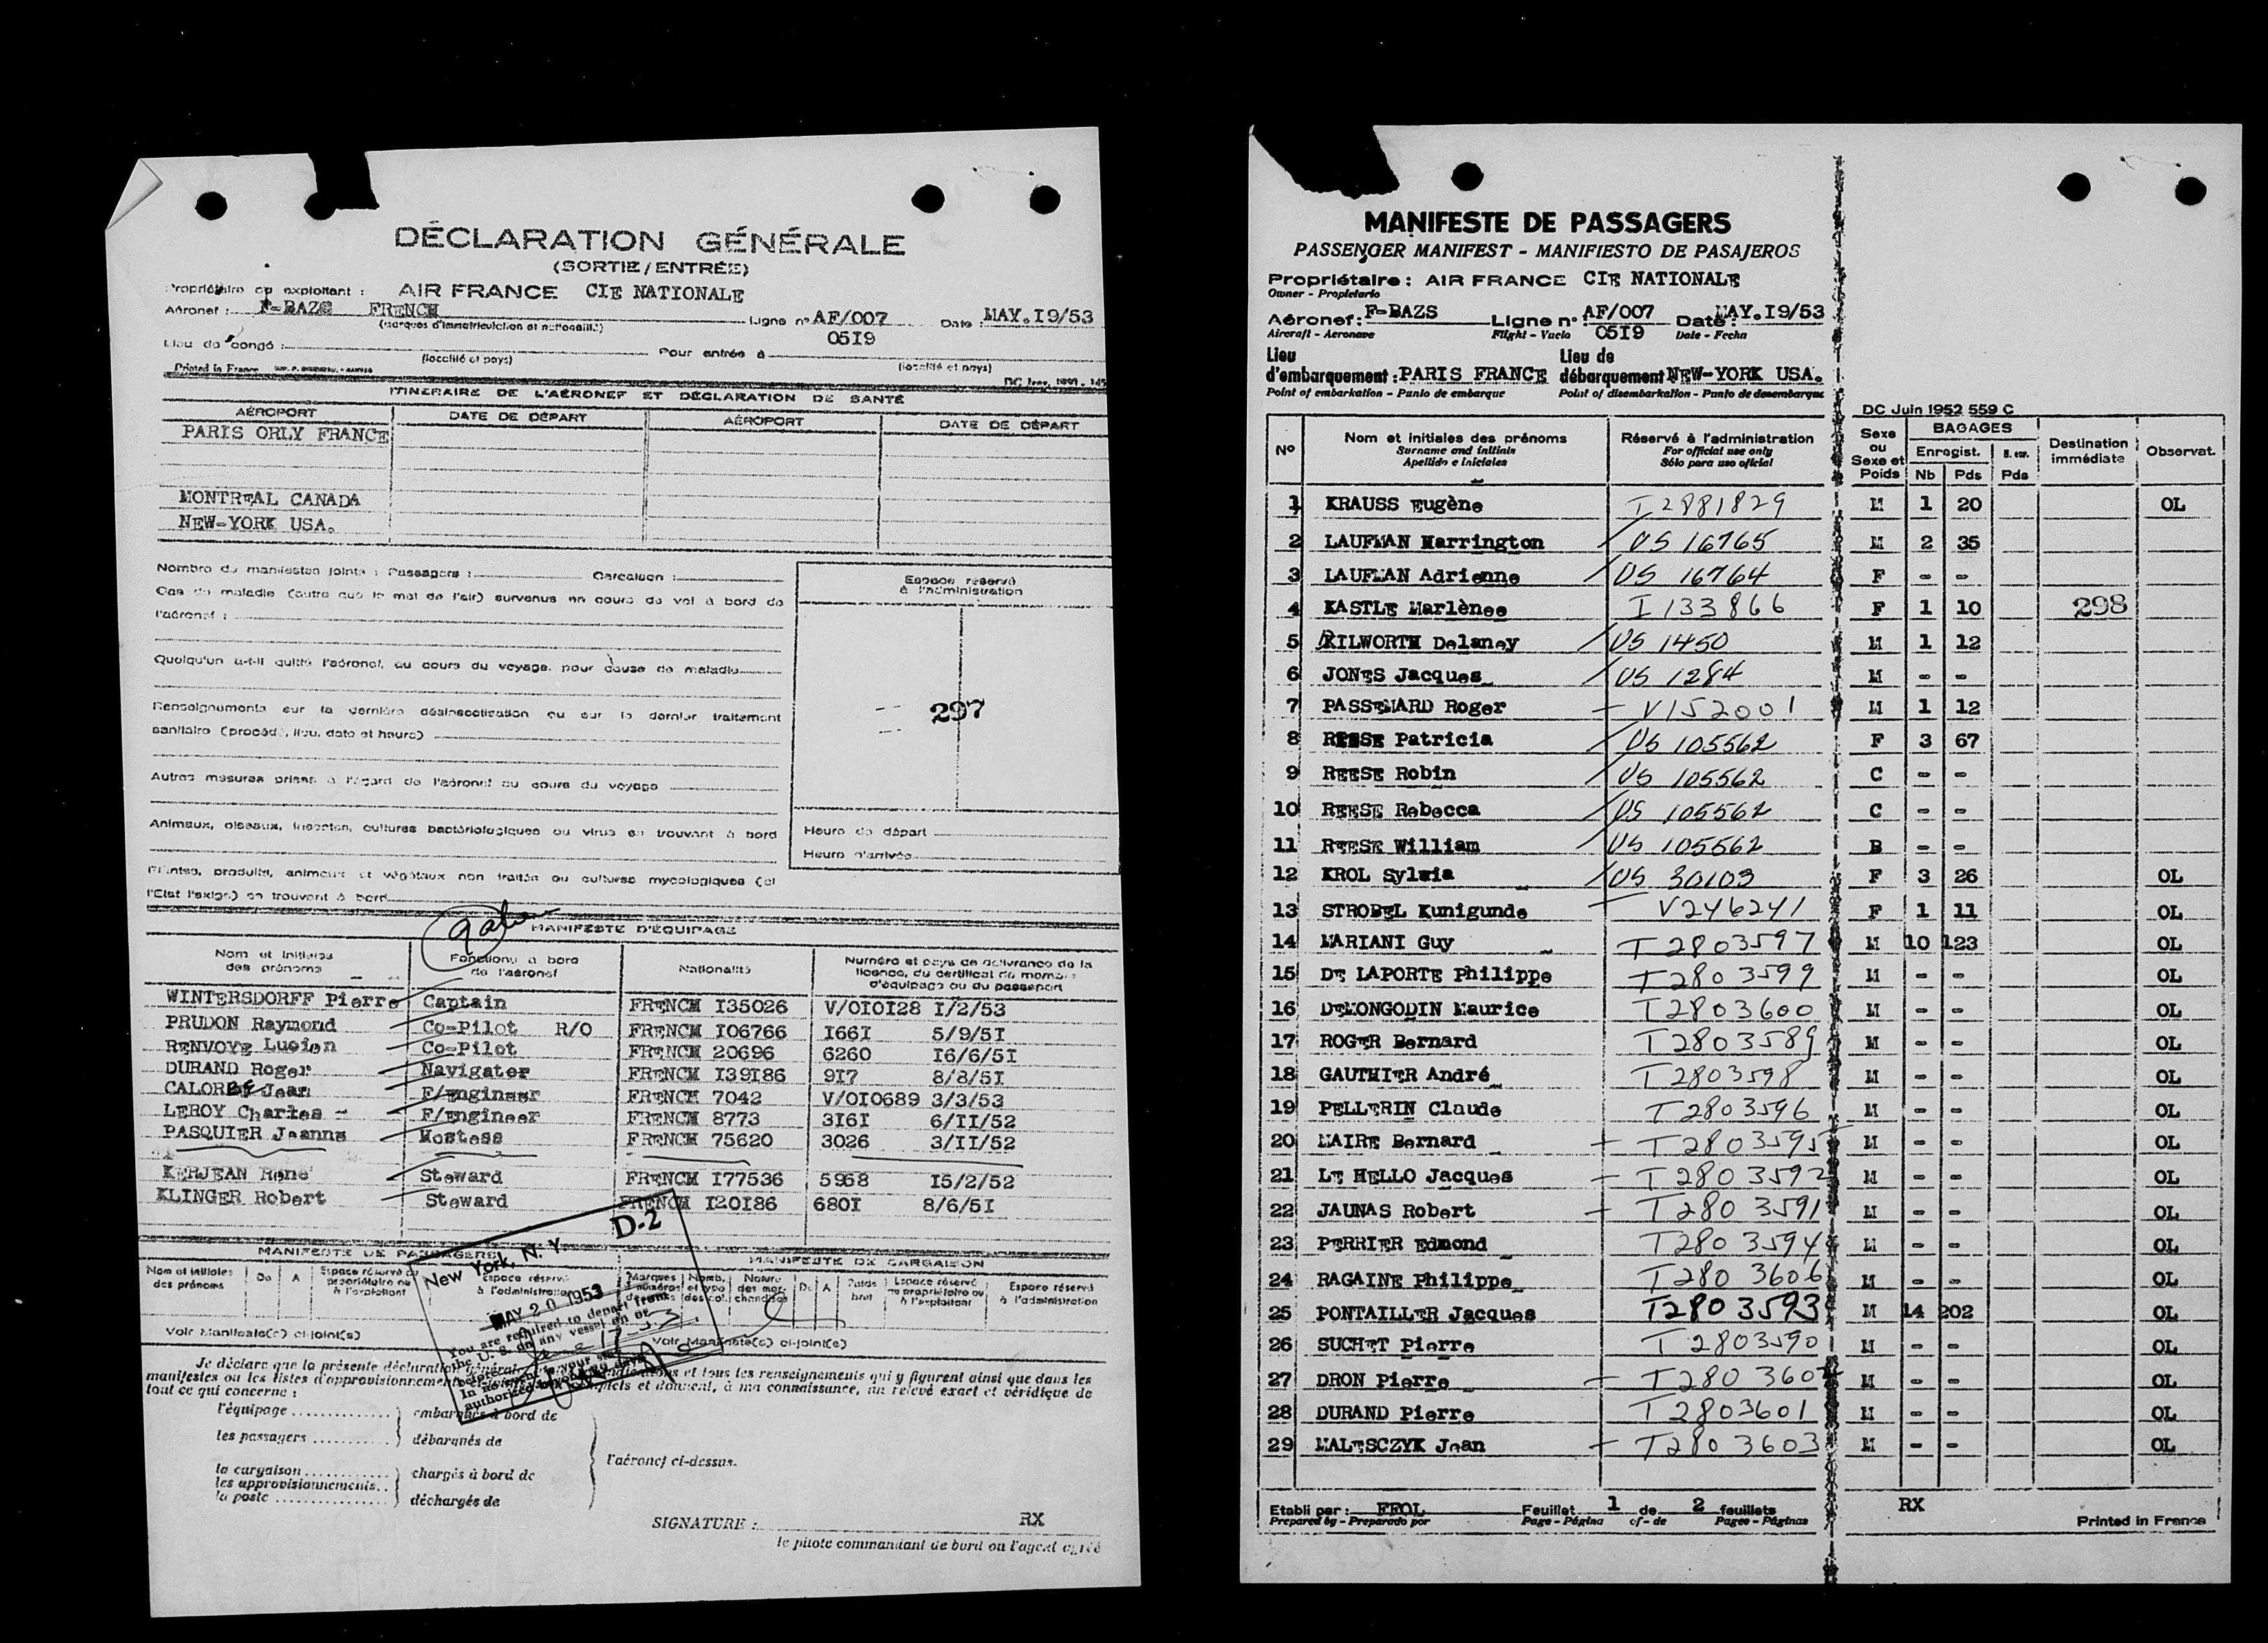 DÉCLARATION GÉNÉRALE
(SORTIE/ENTRÉE)
Propriétaire ou exploitant : AIR FRANCE CIE NATIONALE
Aéronef : F-BAZS FRENCH Ligne n° AF/007 Date : MAY.I9/53
(marques d'immatriculation et nationalité)
05I9
Lieu de congé : Pour entrée à
(localité et pays) (localité et pays)
Printed in France
ITINÉRAIRE DE L'AÉRONEF ET DÉCLARATION DE SANTÉ
AÉROPORT DATE DE DÉPART AÉROPORT DATE DE DÉPART
PARIS ORLY FRANCE
MONTREAL CANADA
NEW-YORK USA.
Nombre de manifestes joints : Passagers : Cargaison :
Cas de maladie (autre que le mal de l'air) survenus en cours de vol à bord de
l'aéronef :
Quelqu'un a-t-il quitté l'aéronef, au cours du voyage, pour cause de maladie
Renseignements sur la dernière désinsectisation ou sur le dernier traitement
sanitaire (procédé, lieu, date et heure)
Autres mesures prises à l'égard de l'aéronef au cours du voyage
Animaux, oiseaux, insectes, cultures bactériologiques ou virus se trouvant à bord
Plantes, produits, animaux et végétaux non traités ou cultures mycologiques (si
l'Etat l'exige) se trouvant à bord
Espace réservé
à l'administration
297
Heure de départ
Heure d'arrivée
MANIFESTE D'ÉQUIPAGE
Nom et initiales des prénoms Fonctions à bord de l'aéronef Nationalité Numéro et pays de délivrance de la licence, du certificat de membre d'équipage ou du passeport
WINTERSDORFF Pierre Captain FRENCH I35026 V/0I0I28 I/2/53
PRUDON Raymond Co-Pilot R/O FRENCH I06766 I66I 5/9/5I
RENVOYE Lucien Co-Pilot FRENCH 20696 6260 I6/6/5I
DURAND Roger Navigater FRENCH I39I86 9I7 8/8/5I
CALORBE Jean F/Engineer FRENCH 7042 V/0I0689 3/3/53
LEROY Charles F/Engineer FRENCH 8773 3I6I 6/II/52
PASQUIER Jeanne Hostess FRENCH 75620 3026 3/II/52
KERJEAN René Steward FRENCH I77536 5968 I5/2/52
KLINGER Robert Steward FRENCH I20I86 680I 8/6/5I
MANIFESTE DE PASSAGERS MANIFESTE DE CARGAISON
Nom et initiales des prénoms De A Espace réservé au propriétaire ou à l'exploitant Espace réservé à l'administration Marques Nomb. et type des col. Nature des marchandises De A Poids brut Espace réservé au propriétaire ou à l'exploitant Espace réservé à l'administration
Voir Manifeste(s) ci-joint(s) Voir Manifeste(s) ci-joint(s)
D-2
New York, N. Y.
MAY 20 1953
You are required to depart from
the U. S. on any vessel on or
before
Je déclare que la présente déclaration générale
manifestes ou les listes d'approvisionnement et tous les renseignements qui y figurent ainsi que dans les
complets et donnent, à ma connaissance, un relevé exact et véridique de
tout ce qui concerne :
l'équipage embarqués à bord de
les passagers débarqués de
l'aéronef ci-dessus.
la cargaison chargés à bord de
les approvisionnements
la poste déchargés de
RX
SIGNATURE :
le pilote commandant de bord ou l'agent agréé
MANIFESTE DE PASSAGERS
PASSENGER MANIFEST - MANIFIESTO DE PASAJEROS
Propriétaire : AIR FRANCE CIE NATIONALE
Owner - Propietario
Aéronef : F-BAZS Ligne n° : AF/007 Date : MAY.I9/53
Aircraft - Aeronave Flight - Vuelo 05I9 Date - Fecha
Lieu d'embarquement : PARIS FRANCE Lieu de débarquement NEW-YORK USA.
Point of embarkation - Punto de embarque Point of disembarkation - Punto de desembarque
DC Juin 1952 559 C
N° Nom et initiales des prénoms Réservé à l'administration Sexe ou Sexe et Poids BAGAGES Destination immédiate Observat.
Surname and initials For official use only Enregist.
Apellido e iniciales Sólo para uso oficial Nb Pds Pds
1 KRAUSS Eugène I2881829 M 1 20 OL
2 LAUFMAN Harrington US 16765 M 2 35
3 LAUFMAN Adrienne US 16764 F - -
4 KASTLE Marlènee I 133866 F 1 10 298
5 KILWORTH Delaney US 1450 M 1 12
6 JONES Jacques US 1284 M - -
7 PASSEMARD Roger V152001 M 1 12
8 REESE Patricia US 105562 F 3 67
9 REESE Robin US 105562 C - -
10 REESE Rebecca US 105562 C - -
11 REESE William US 105562 B - -
12 KROL Sylvia US 30103 F 3 26 OL
13 STROBEL Kunigunde V246241 F 1 11 OL
14 MARIANI Guy T2803597 M 10 123 OL
15 DE LAPORTE Philippe T2803599 M - - OL
16 DEMONGODIN Maurice T2803600 M - - OL
17 ROGER Bernard T2803589 M - - OL
18 GAUTHIER André T2803598 M - - OL
19 PELLERIN Claude T2803596 M - - OL
20 MAIRE Bernard T2803595 M - - OL
21 LE HELLO Jacques T2803592 M - - OL
22 JAUNAS Robert T2803591 M - - OL
23 PERRIER Edmond T2803594 M - - OL
24 RAGAINE Philippe T2803606 M - - OL
25 PONTAILLER Jacques T2803593 M 14 202 OL
26 SUCHET Pierre T2803590 M - - OL
27 DRON Pierre M - - OL
28 DURAND Pierre T2803601 M - - OL
29 MALESCZYK Jean T2803603 M - - OL
Etabli par : FFOL Feuillet 1 de 2 feuillets RX
Prepared by - Preparado por Page - Página of - de Pages - Páginas
Printed in France